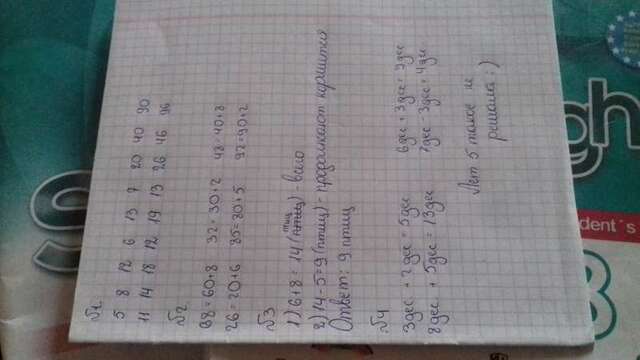 №1
5 8 12 6 13 7 20 40 90
11 14 18 12 19 13 26 46 96
№2
68=60+8 32=30+2 48=40+8
26=20+6 85=80+5 92=90+2
№3
1) 6+8=14 (птиц) - всего
2) 14-5=9 (птиц) - продолжают кормится
Ответ: 9 птиц
№4
3дес. + 2дес = 5дес 6дес + 3дес = 9дес
8дес. + 5дес = 13дес 7дес - 3дес = 4дес
Лет 5 такое не
решала :)
dent's
gh